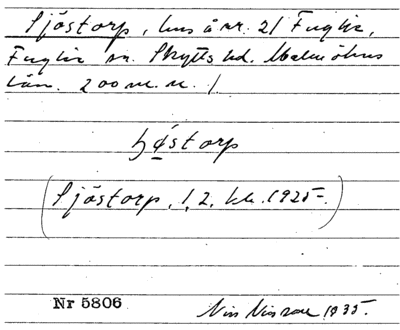 Sjöstorp, hus å nr. 21 Fuglie,
Fuglie sn. Skytts hd. Malmöhus
län. 200 m. n. /
ɧǿstorp
(Sjöstorp, 1, 2, kk. 1925-.)
Nr 5806
Nils Nilsson 1935.